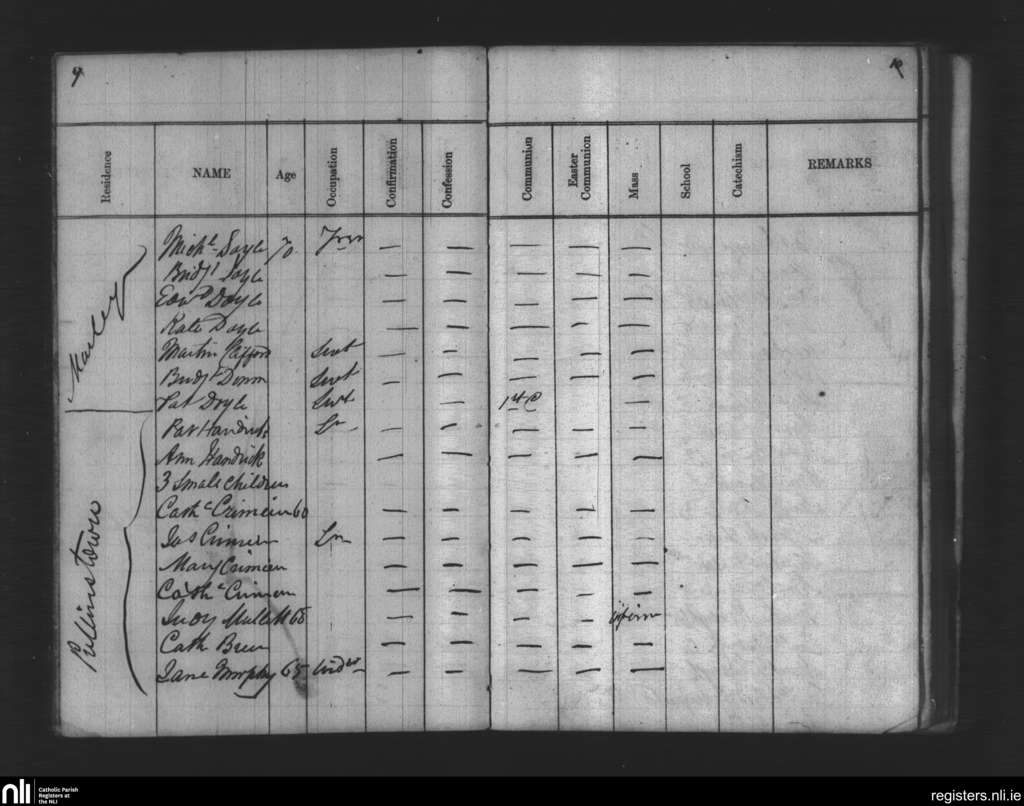 9 10
Residence NAME Age Occupation Confirmation Confession Communion Easter Communion Mass School Catechism REMARKS
Marley
Michl Doyle 70 — — — — —
Bridgt Doyle — — — — —
Edwd Doyle — — — — —
Kate Doyle — — — — —
Martin Servt — — — — —
Bridgt Servt — — — — —
Pat Doyle Servt — 1st C —
Pullinstown
Pat Handrick Lr — — — — —
Ann Handrick — — — — —
3 Small Children
Cathe Crimeen 60 — — — — —
Jas Crimeen Lr — — — — —
Mary Crimeen — — — — —
Cathe Crimeen — — — — —
Judy Mullett 68 — — — — infirm
Cath Breen — — — — —
Jane Murphy 65 Widow — — — — —
nli Catholic Parish Registers at the NLI
registers.nli.ie